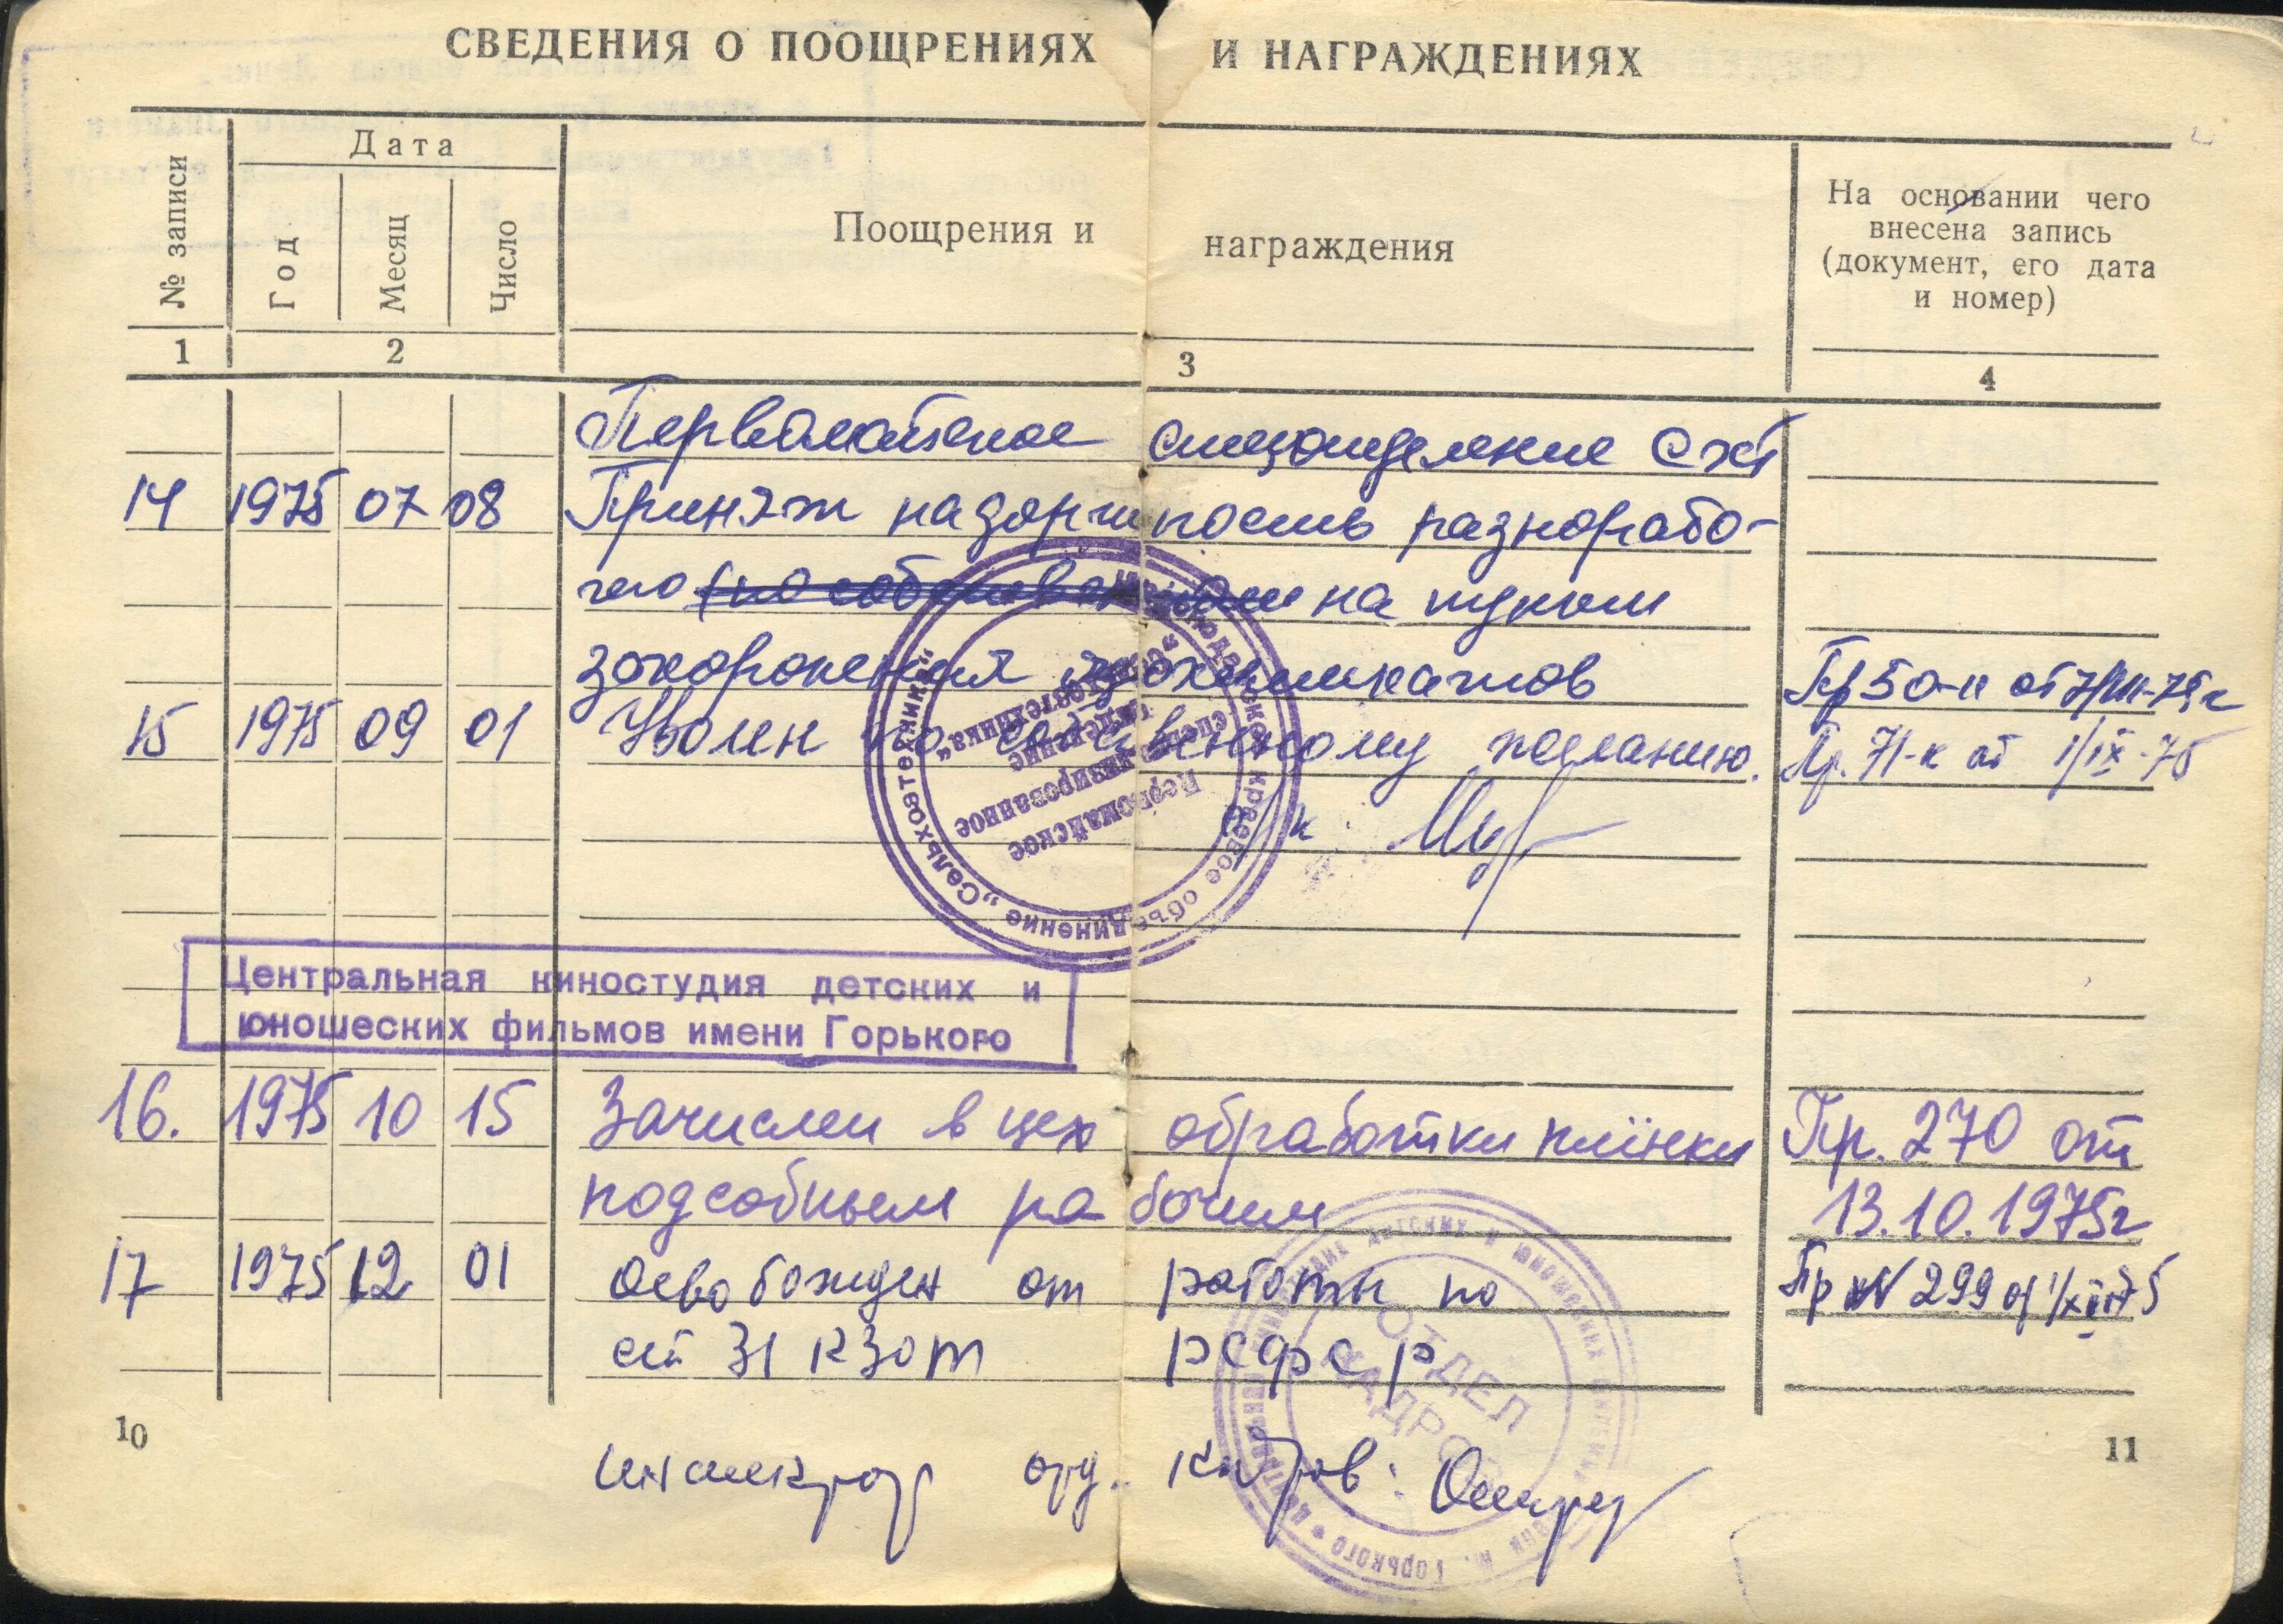 СВЕДЕНИЯ О ПООЩРЕНИЯХ И НАГРАЖДЕНИЯХ
№ записи
Дата
Год
Месяц
Число
Поощрения и награждения
На основании чего
внесена запись
(документ, его дата
и номер)
1 2 3 4
Первомайское спецотделение СХТ
14 1975 07 08 Принят на должность разнорабо-
чего на пункт
захоронения ядохимикатов Пр 50-к от 7/VII-75г
15 1975 09 01 Уволен по собственному желанию. Пр. 71-к от 1/IX-75
краевое объединение „Сельхозтехника"
Первомайское
специализированное
отделение
„Сельхозтехника"
Центральная киностудия детских и
юношеских фильмов имени Горького
16. 1975 10 15 Зачислен в цех обработки плёнки Пр. 270 от
подсобным рабочим 13.10.1975г
17 1975 12 01 Освобожден от работы по Пр N 299 от 1/XII 75
ст 31 КЗОТ РСФСР
ОТДЕЛ
КАДРОВ
инспектор отд. кадров:
10
11